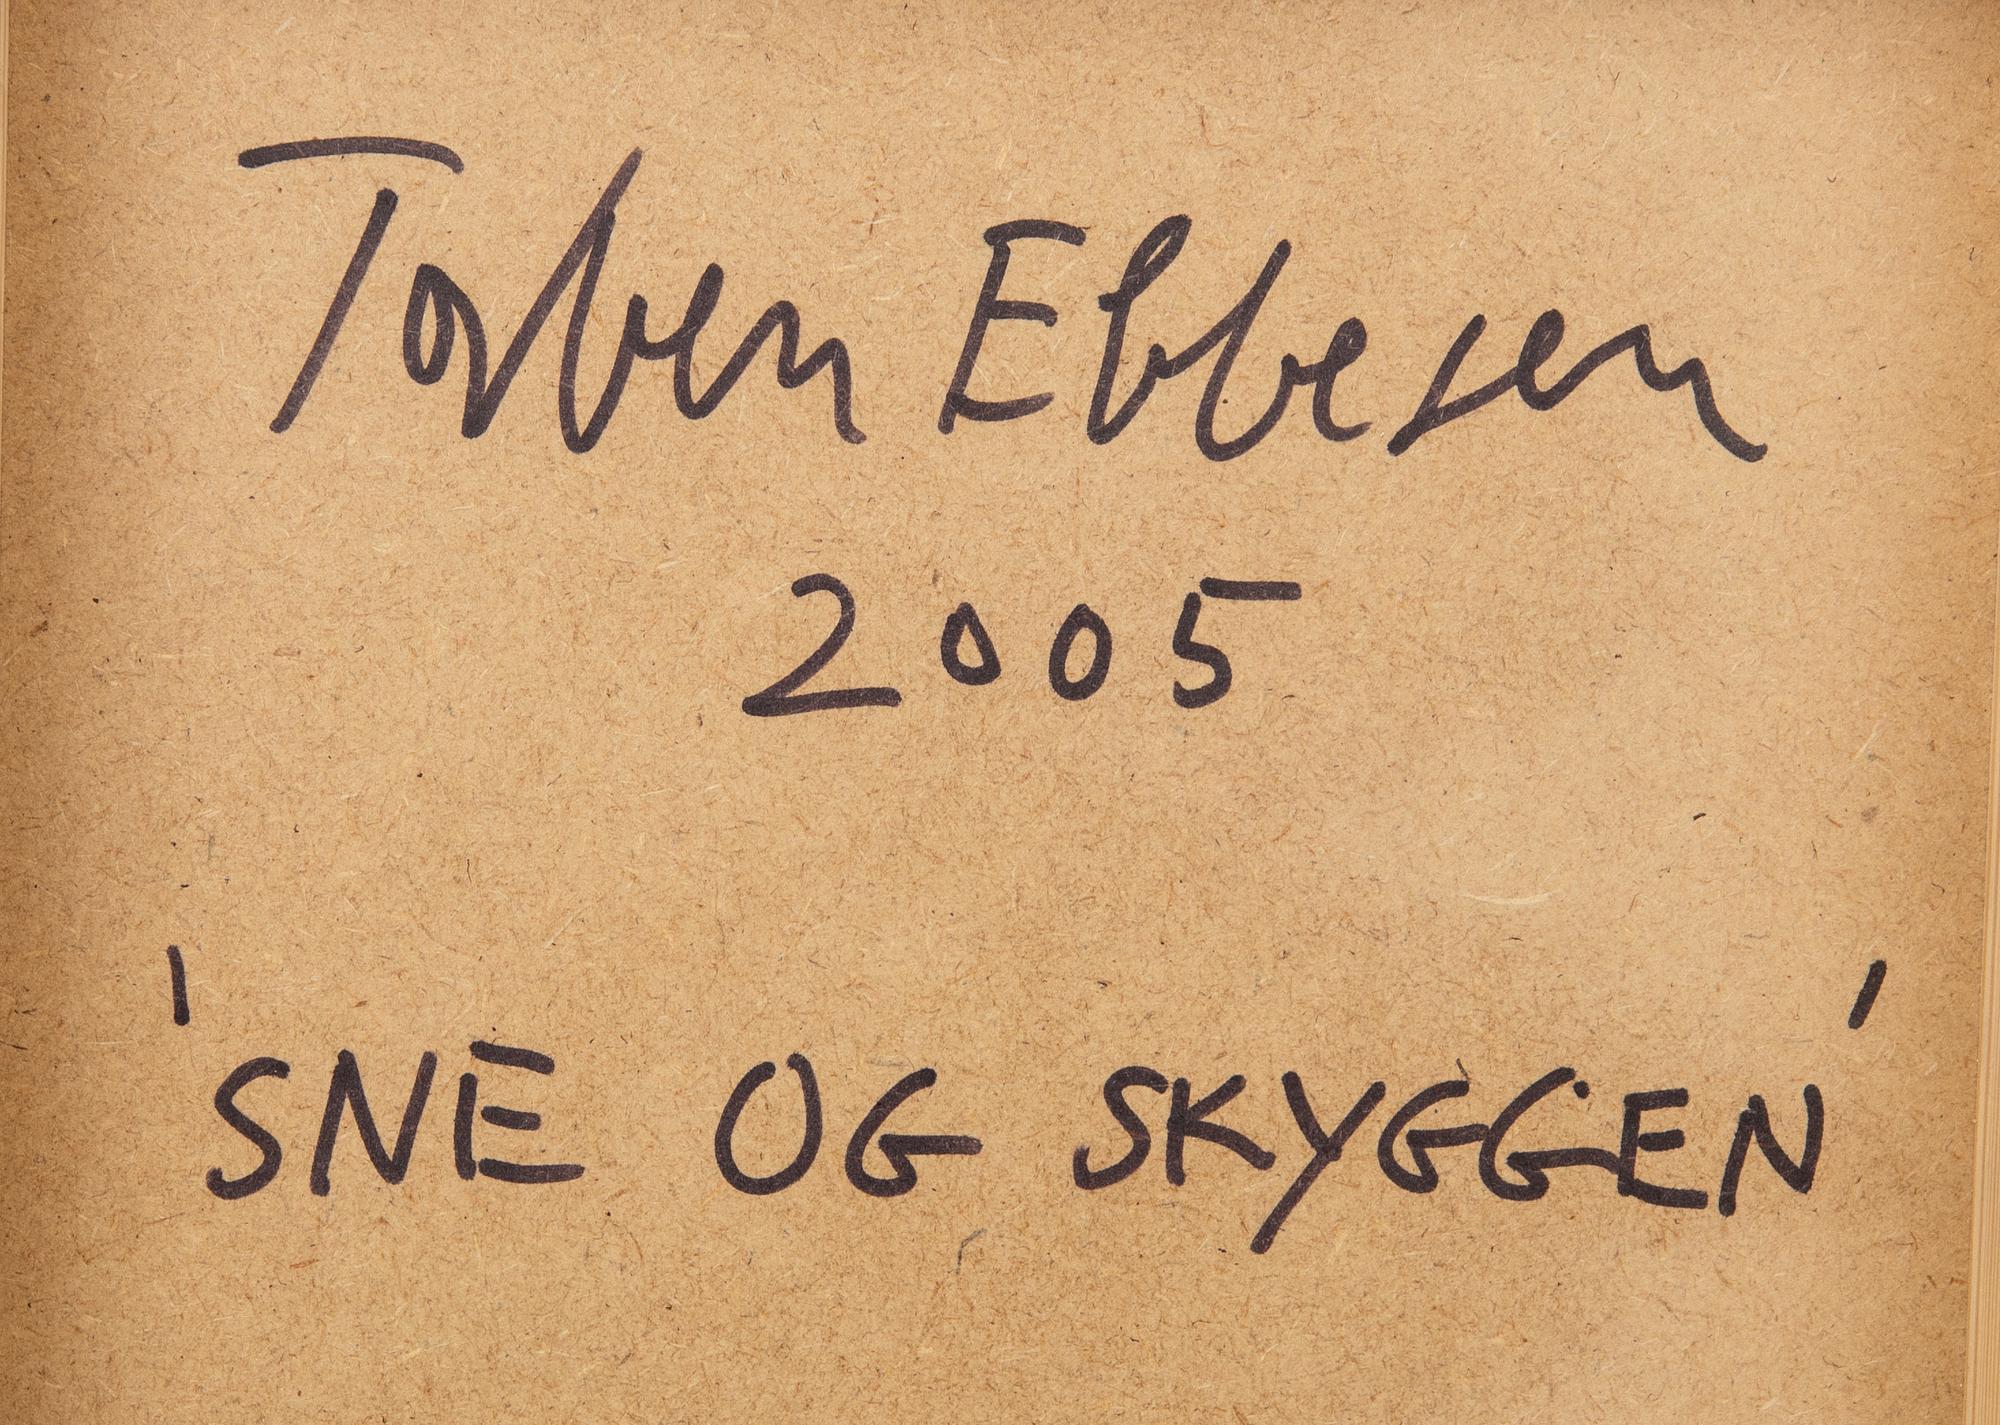 Torben Ebbesen
2005
'SNE OG SKYGGEN'